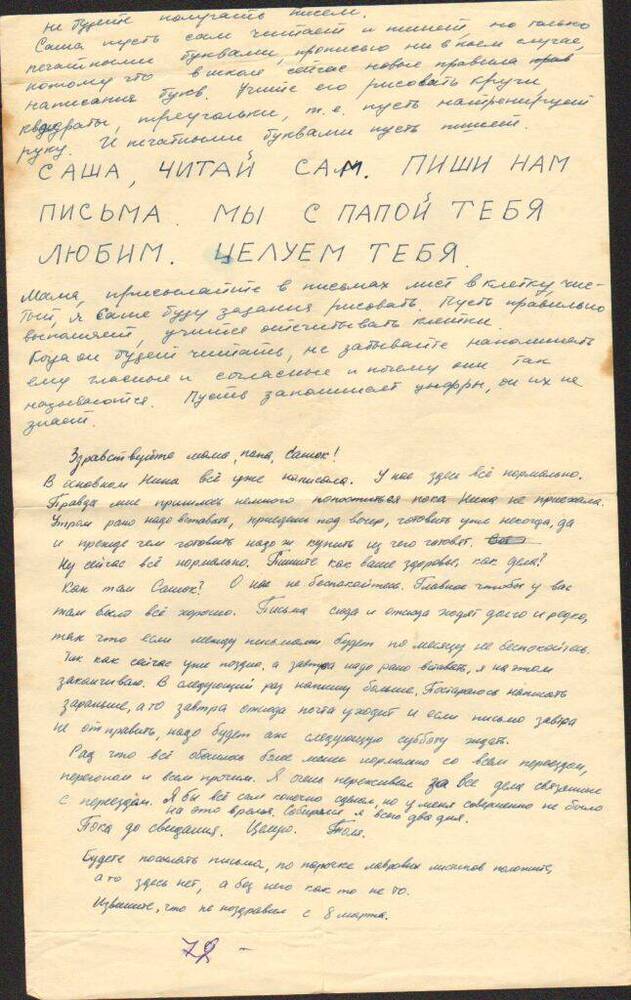 не будете получать писем.
Саша пусть сам читает и пишет, но только
печатными буквами, прописью ни в коем случае,
потому что в школе сейчас новые правила прав
написания букв. Учите его рисовать круги
квадраты, треугольки, т.е. пусть натренирует
руку. И печатными буквами пусть пишет.
САША, ЧИТАЙ САМ. ПИШИ НАМ
ПИСЬМА. МЫ С ПАПОЙ ТЕБЯ
ЛЮБИМ. ЦЕЛУЕМ ТЕБЯ.
Мама, присылайте в письмах лист в клетку, чис-
тый, я Саше буду задания рисовать. Пусть правильно
выполняет, учится отсчитывать клетки.
Когда он будет читать, не забывайте напоминать
ему гласные и согласные и почему они так
называются. Пусть запоминает цифры, он их не
знает.
Здравствуйте мама, папа, Сашок!
В основном Нина всё уже написала. У нас здесь всё нормально.
Правда мне пришлось немного попоститься пока Нина не приехала.
Утром рано надо вставать, приедешь под вечер, готовить уже некогда, да
и прежде чем готовить надо ж купить из чего готовят.
Ну сейчас всё нормально. Пишите как ваше здоровье, как дела?
Как там Сашок? О нас не беспокойтесь. Главное чтобы у вас
там было всё хорошо. Письма сюда и отсюда ходят долго и редко,
так что если между письмами будет по месяцу не беспокойтесь.
Так как сейчас уже поздно, а завтра надо рано вставать, я на этом
заканчиваю. В следующий раз напишу больше. Постараюсь написать
заранние, а то завтра отсюда почта уходит и если письмо завтра
не отправить, надо будет аж следующую субботу ждать.
Рад что всё обошлось более менее нормально со всем переездом,
перегоном и всем прочим. Я очень переживал за все дела связанные
с переездом. Я бы всё сам конечно сделал, но у меня совершенно не было
на это время. Собирался я всего два дня.
Пока до свидания. Целую. Толя.
Будете посылать письма, по парочке лавровых листиков положите,
а то здесь нет, а без него как то не то.
Извините, что не поздравил с 8 марта.